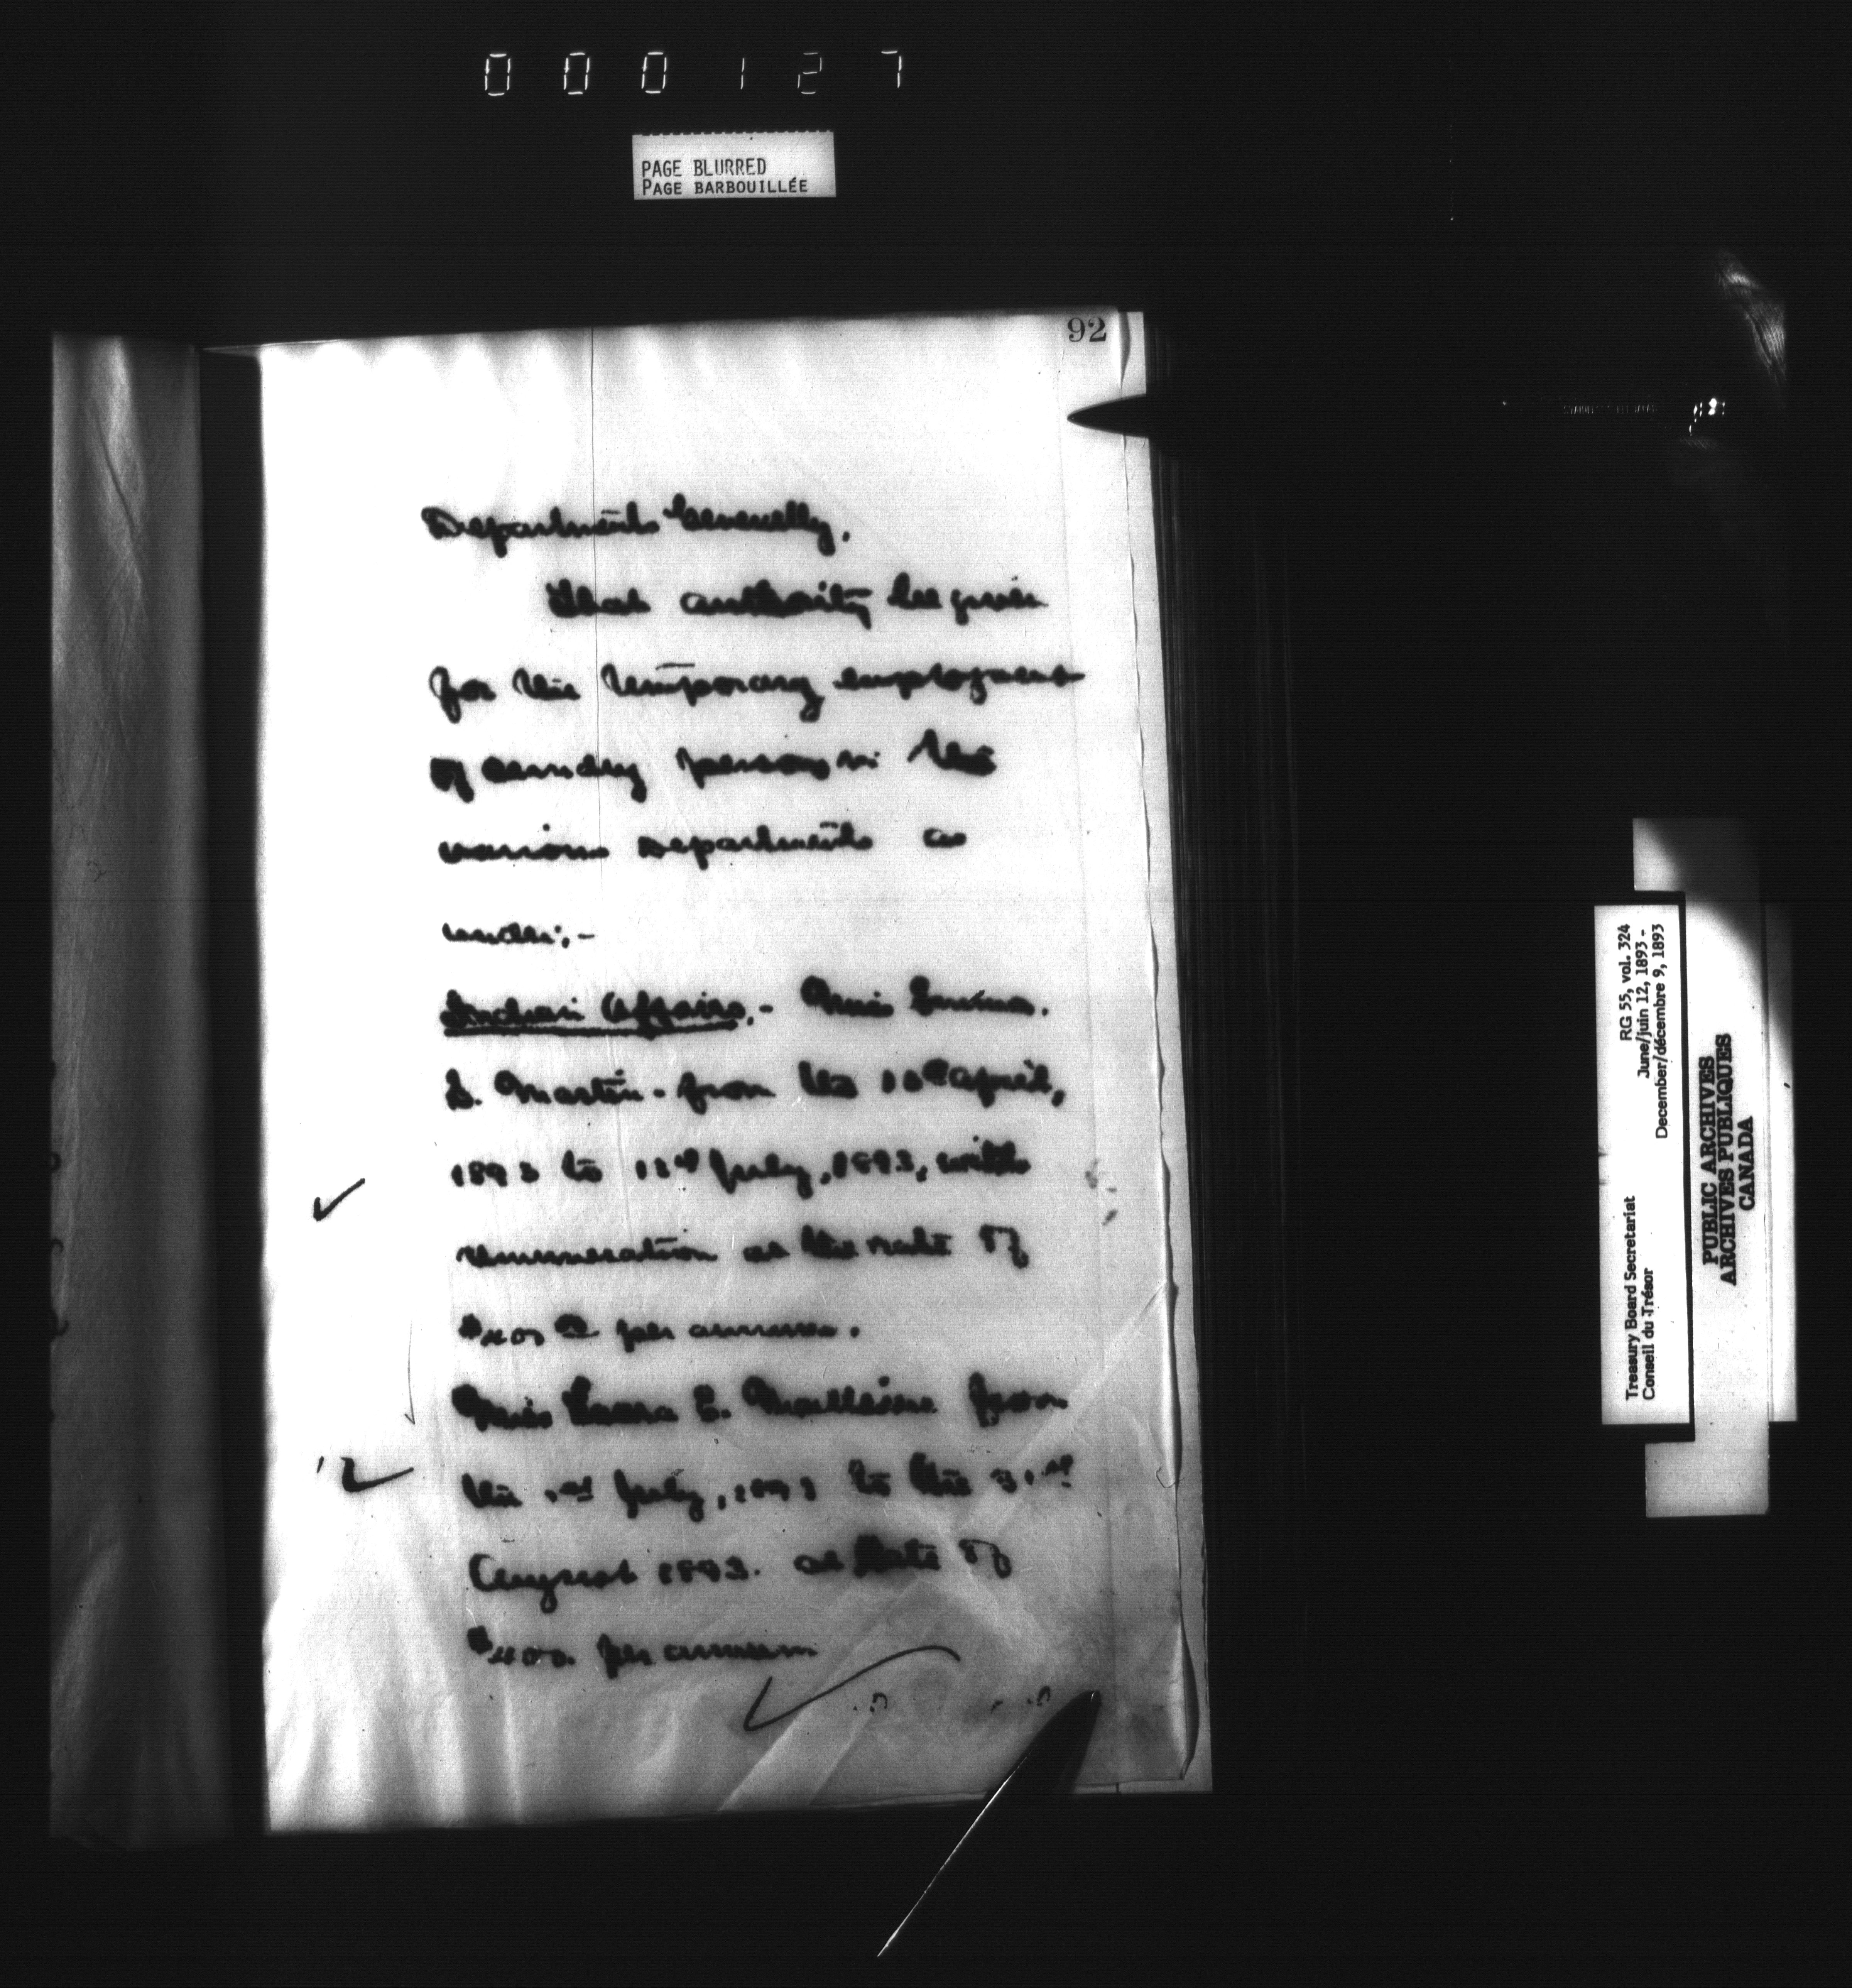 000127
PAGE BLURRED
PAGE BARBOUILLÉE
92
Departments Generally.
That authority be given
for the temporary employment
of sundry persons in the
various Departments as
under:-
Indian Affairs.- Miss Emma.
S. Martin - from the April,
1893 to 12th July, 1893, with
remuneration at the rate of
$400 00 per annum.
Miss E. from
the 1st July, 1893 to the 31st
August 1893. at rate of
$400. per annum
RG 55, vol. 324
June/juin 12, 1893 -
December/décembre 9, 1893
Treasury Board Secretariat
Conseil du Trésor
PUBLIC ARCHIVES
ARCHIVES PUBLIQUES
CANADA